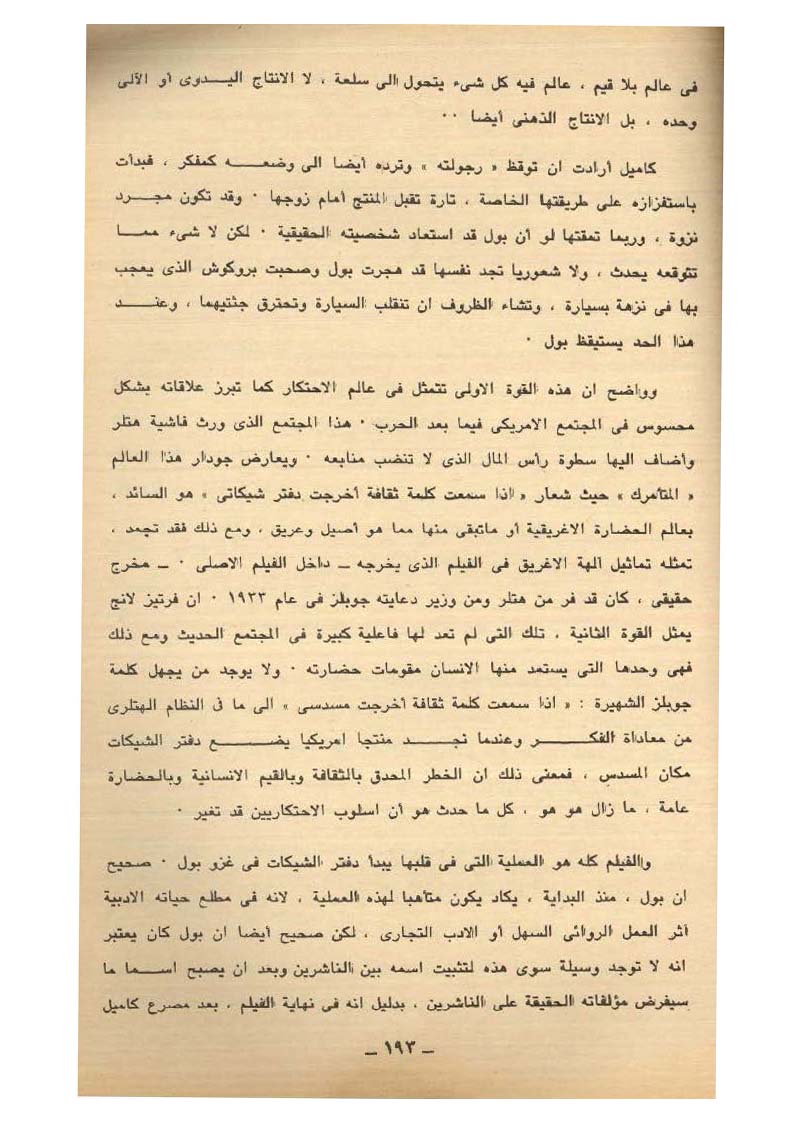 فى عالم بلا قيم ، عالم فيه كل شىء يتحول الى سلعة ، لا الانتاج اليـــدوى أو الآلى
وحده ، بل الانتاج الذهنى أيضا ٠٠
كاميل أرادت ان توقظ « رجولته » وترده أيضا الى وضعــــه كمفكر ، فبدأت
باستفزازه على طريقتها الخاصة ، تارة تقبل المنتج أمام زوجها ٠ وقد تكون مجــرد
نزوة ، وربما تمقتها لو أن بول قد استعاد شخصيته الحقيقية ٠ لكن لا شىء ممـــا
تتوقعه يحدث ، ولا شعوريا تجد نفسها قد هجرت بول وصحبت بروكوش الذى يعجب
بها فى نزهة بسيارة ، وتشاء الظروف ان تنقلب السيارة وتحترق جثتيهما ، وعنـــد
هذا الحد يستيقظ بول ٠
وواضح ان هذه القوة الاولى تتمثل فى عالم الاحتكار كما تبرز علاقاته بشكل
محسوس فى المجتمع الامريكى فيما بعد الحرب ٠ هذا المجتمع الذى ورث فاشية هتلر
وأضاف اليها سطوة رأس المال الذى لا تنضب منابعه ٠ ويعارض جودار هذا العالم
« المتأمرك » حيث شعار « اذا سمعت كلمة ثقافة أخرجت دفتر شيكاتى » هو السائد ،
بعالم الحضارة الاغريقية أو ماتبقى منها مما هو أصيل وعريق ، ومع ذلك فقد تجمد ،
تمثله تماثيل آلهة الاغريق فى الفيلم الذى يخرجه ـ داخل الفيلم الاصلى ٠ ـ مخرج
حقيقى ، كان قد فر من هتلر ومن وزير دعايته جوبلز فى عام ١٩٣٣ ٠ ان فرتيز لانج
يمثل القوة الثانية ، تلك التى لم تعد لها فاعلية كبيرة فى المجتمع الحديث ومع ذلك
فهى وحدها التى يستمد منها الانسان مقومات حضارته ٠ ولا يوجد من يجهل كلمة
جوبلز الشهيرة : « اذا سمعت كلمة ثقافة أخرجت مسدسى » الى ما فى النظام الهتلرى
من معاداة الفكـــــر وعندما نجـــــد منتجا امريكيا يضـــــع دفتر الشيكات
مكان المسدس ، فمعنى ذلك ان الخطر المحدق بالثقافة وبالقيم الانسانية وبالحضارة
عامة ، ما زال هو هو ، كل ما حدث هو أن اسلوب الاحتكاريين قد تغير ٠
والفيلم كله هو العملية التى فى قلبها يبدأ دفتر الشيكات فى غزو بول ٠ صحيح
ان بول ، منذ البداية ، يكاد يكون متأهبا لهذه العملية ، لانه فى مطلع حياته الادبية
آثر العمل الروائى السهل أو الادب التجارى ، لكن صحيح أيضا ان بول كان يعتبر
انه لا توجد وسيلة سوى هذه لتثبيت اسمه بين الناشرين وبعد ان يصبح اســما ما
سيفرض مؤلفاته الحقيقة على الناشرين ، بدليل انه فى نهاية الفيلم ، بعد مصرع كاميل
ـ ١٩٣ ـ